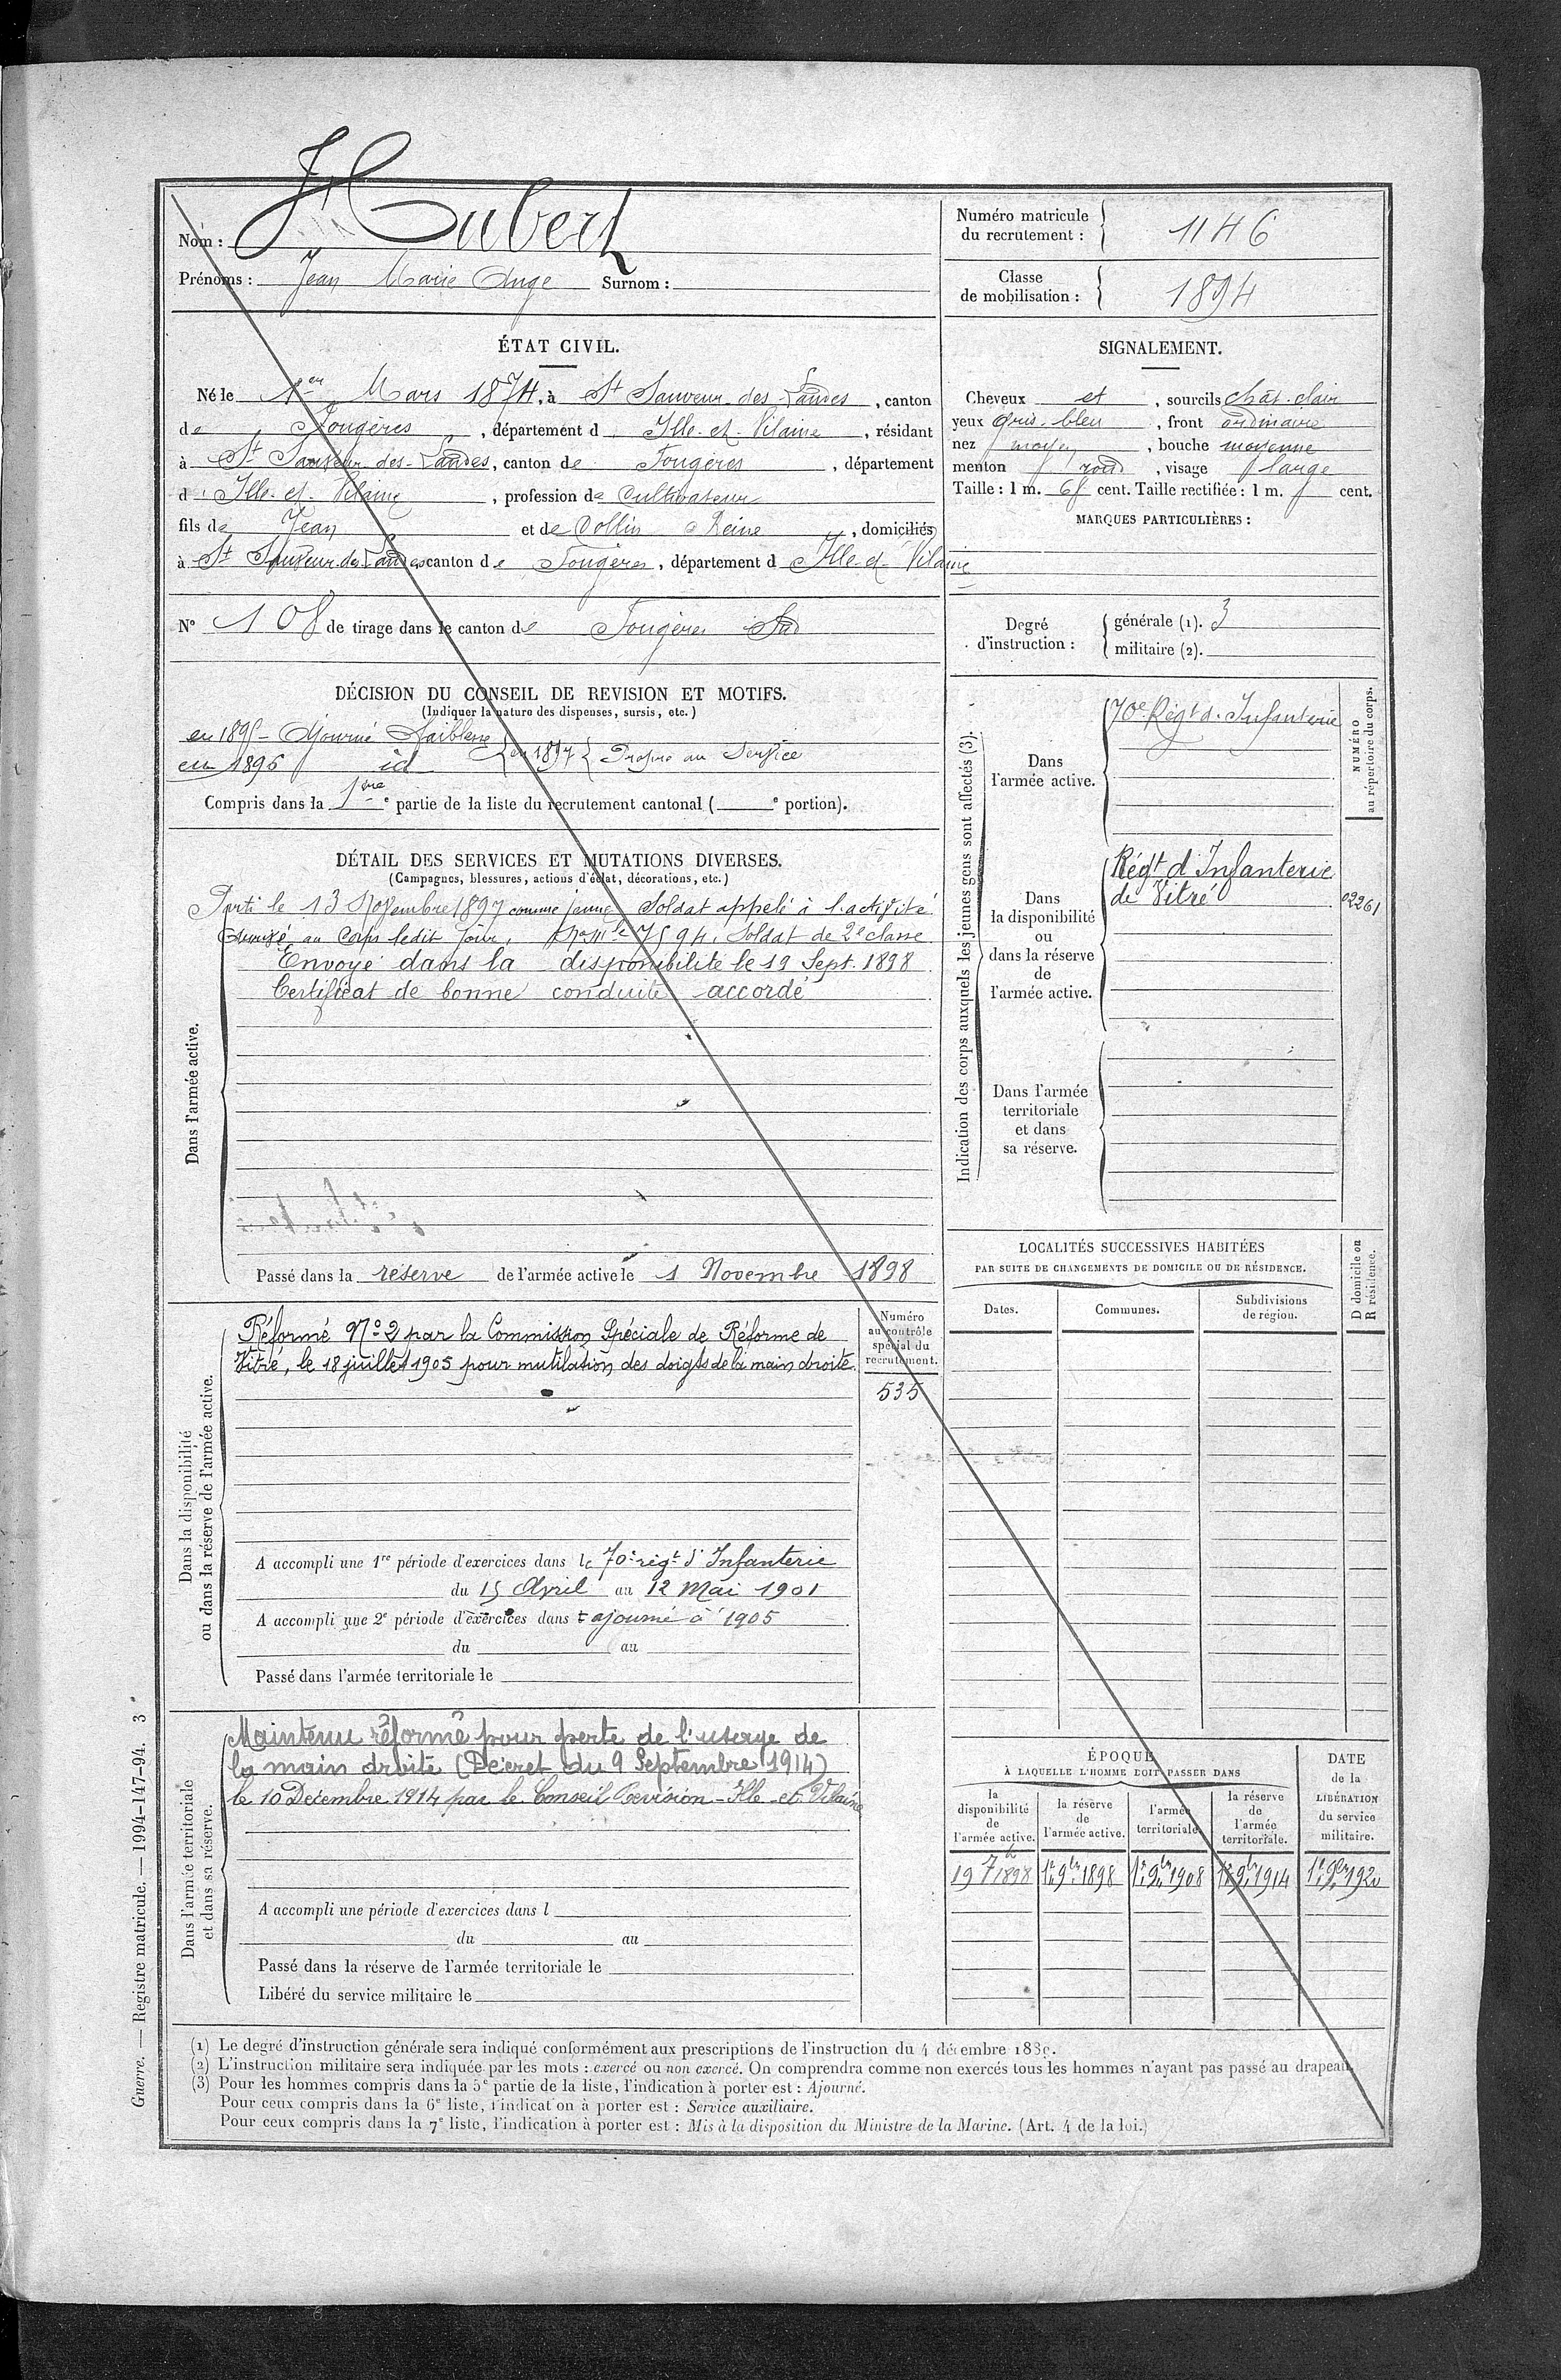 Nom : Hubert
Prénoms : Jean Marie Ange Surnom :
Numéro matricule du recrutement : 1146
Classe de mobilisation : 1894
ÉTAT CIVIL.
Né le 1er Mars 1874, à St Sauveur-des-Landes, canton
de Fougères, département d Ille-et-Vilaine, résidant
à St Sauveur-des-Landes, canton de Fougères, département
d Ille-et-Vilaine, profession de Cultivateur
fils de Jean et de Collin Reine, domiciliés
à St Sauveur-des-Landes canton de Fougères, département d Ille-et-Vilaine
N° 108 de tirage dans le canton de Fougères Sud
SIGNALEMENT.
Cheveux et, sourcils chât-clair
yeux gris-bleu, front ordinaire
nez moyen, bouche moyenne
menton rond, visage large
Taille : 1 m. 68 cent. Taille rectifiée : 1 m. cent.
MARQUES PARTICULIÈRES :
Degré d'instruction :
générale (1). 3
militaire (2).
DÉCISION DU CONSEIL DE REVISION ET MOTIFS.
(Indiquer la nature des dispenses, sursis, etc.)
en 1895 - Ajourné Faiblesse
en 1896 id } en 1897 { Propre au Service
Compris dans la 1ère e partie de la liste du recrutement cantonal ( e portion).
DÉTAIL DES SERVICES ET MUTATIONS DIVERSES.
(Campagnes, blessures, actions d'éclat, décorations, etc.)
Dans l'armée active.
Parti le 13 Novembre 1897 comme jeune Soldat appelé à l'activité
Arrivé au Corps ledit jour, No mle 7594, Soldat de 2e classe
Envoyé dans la disponibilité le 19 Sept. 1898
Certificat de bonne conduite accordé
Passé dans la réserve de l'armée active le 1 Novembre 1898
Indication des corps auxquels les jeunes gens sont affectés (3).
NUMÉRO au répertoire du corps.
Dans l'armée active.
70e Régt d'Infanterie
Dans la disponibilité ou dans la réserve de l'armée active.
Régt d'Infanterie
de Vitré
02261
Dans l'armée territoriale et dans sa réserve.
LOCALITÉS SUCCESSIVES HABITÉES
PAR SUITE DE CHANGEMENTS DE DOMICILE OU DE RÉSIDENCE.
D domicile ou R résidence.
Dates. Communes. Subdivisions de région.
Dans la disponibilité ou dans la réserve de l'armée active.
Numéro au contrôle spécial du recrutement.
535
Réformé No 2 par la Commission Spéciale de Réforme de
Vitré, le 18 juillet 1905 pour mutilation des doigts de la main droite.
A accompli une 1re période d'exercices dans le 70e régt d'Infanterie
du 15 Avril au 12 Mai 1901
A accompli une 2e période d'exercices dans ajourné à 1905
du au
Passé dans l'armée territoriale le
Dans l'armée territoriale et dans sa réserve.
Maintenu réformé pour perte de l'usage de
la main droite (Décret du 9 Septembre 1914)
le 10 Décembre 1914 par le Conseil Revision - Ille-et-Vilaine
A accompli une période d'exercices dans l
du au
Passé dans la réserve de l'armée territoriale le
Libéré du service militaire le
ÉPOQUE
À LAQUELLE L'HOMME DOIT PASSER DANS
la disponibilité de l'armée active.
la réserve de l'armée active.
l'armée territoriale.
la réserve de l'armée territoriale.
DATE de la LIBÉRATION du service militaire.
19 7b 1898 1er 9bre 1898 1er 9bre 1908 1er 9bre 1914 1er 9bre 1920
(1) Le degré d'instruction générale sera indiqué conformément aux prescriptions de l'instruction du 4 décembre 1889.
(2) L'instruction militaire sera indiquée par les mots : exercé ou non exercé. On comprendra comme non exercés tous les hommes n'ayant pas passé au drapeau.
(3) Pour les hommes compris dans la 5e partie de la liste, l'indication à porter est : Ajourné.
Pour ceux compris dans la 6e liste, l'indication à porter est : Service auxiliaire.
Pour ceux compris dans la 7e liste, l'indication à porter est : Mis à la disposition du Ministre de la Marine. (Art. 4 de la loi.)
Guerre. — Registre matricule. — 1994-147-94. 3